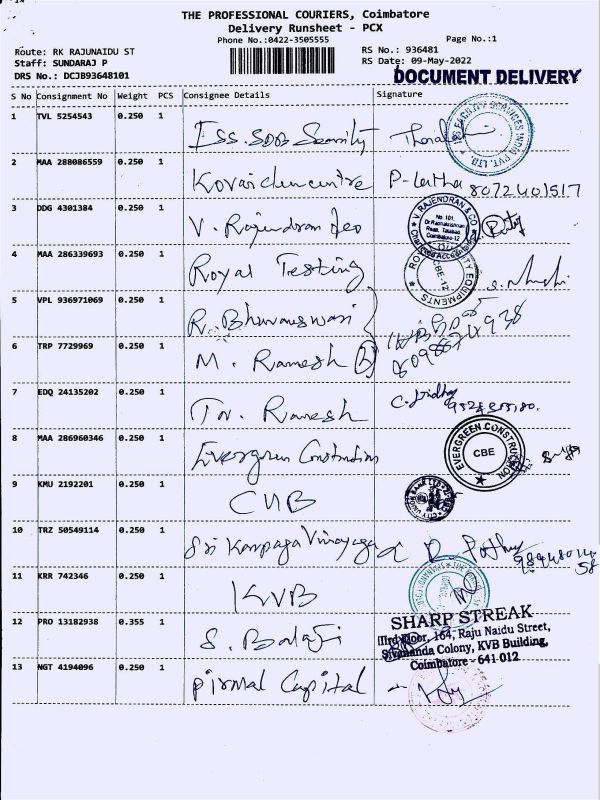 THE PROFESSIONAL COURIERS, Coimbatore
Delivery Runsheet - PCX
Phone No.:0422-3505555
Page No.:1
Route: RK RAJUNAIDU ST
RS No.: 936481
Staff: SUNDARAJ P
RS Date: 09-May-2022
DRS No.: DCJB93648101
DOCUMENT DELIVERY
S No Consignment No Weight PCS Consignee Details Signature
1 TVL 5254543 0.250 1 Ess. SDB Security
FACILITY SERVICES INDIA PVT. LTD.
2 MAA 288086559 0.250 1 P-Latha 8072401517
3 DDG 4301384 0.250 1 V. Rajendran
V RAJENDRAN & CO
No 101,
Dr Radhakrishnan
Road, Tatabad
Coimbatore-12
Chartered Accountants
4 MAA 286339693 0.250 1 Royal Testing
EQUIPMENTS
CBE-12
5 VPL 936971069 0.250 1 R. Bhuvaneswari
6 TRP 7729969 0.250 1 M. Ramesh
7 EDQ 24135202 0.250 1 Ramesh
8 MAA 286960346 0.250 1 Evergreen Constructions
EVERGREEN CONSTRUCTION
CBE
9 KMU 2192201 0.250 1 CUB
CITY UNION BANK LTD
10 TRZ 50549114 0.250 1 Sri Karpaga Vinayaga
11 KRR 742346 0.250 1 KVB
12 PRO 13182938 0.355 1 S. Balaji
SHARP STREAK
IIIrd Floor, 164, Raju Naidu Street,
Sivananda Colony, KVB Building,
Coimbatore - 641 012
13 NGT 4194096 0.250 1 Pirmal Capital